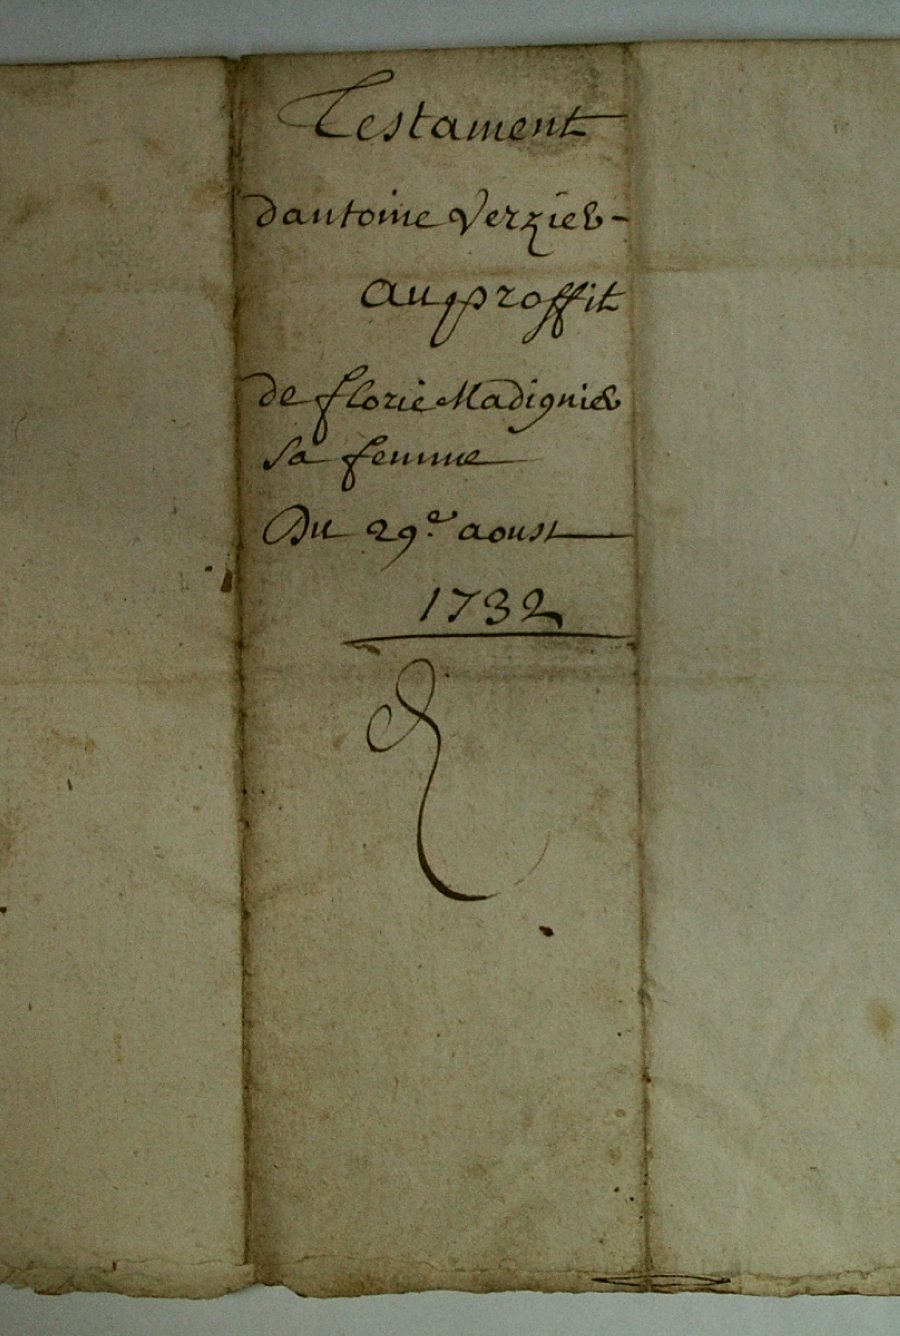 Testament
dantoine Verzier
Au proffit
de florie Madignier
sa femme
Du 29.e aoust
1732